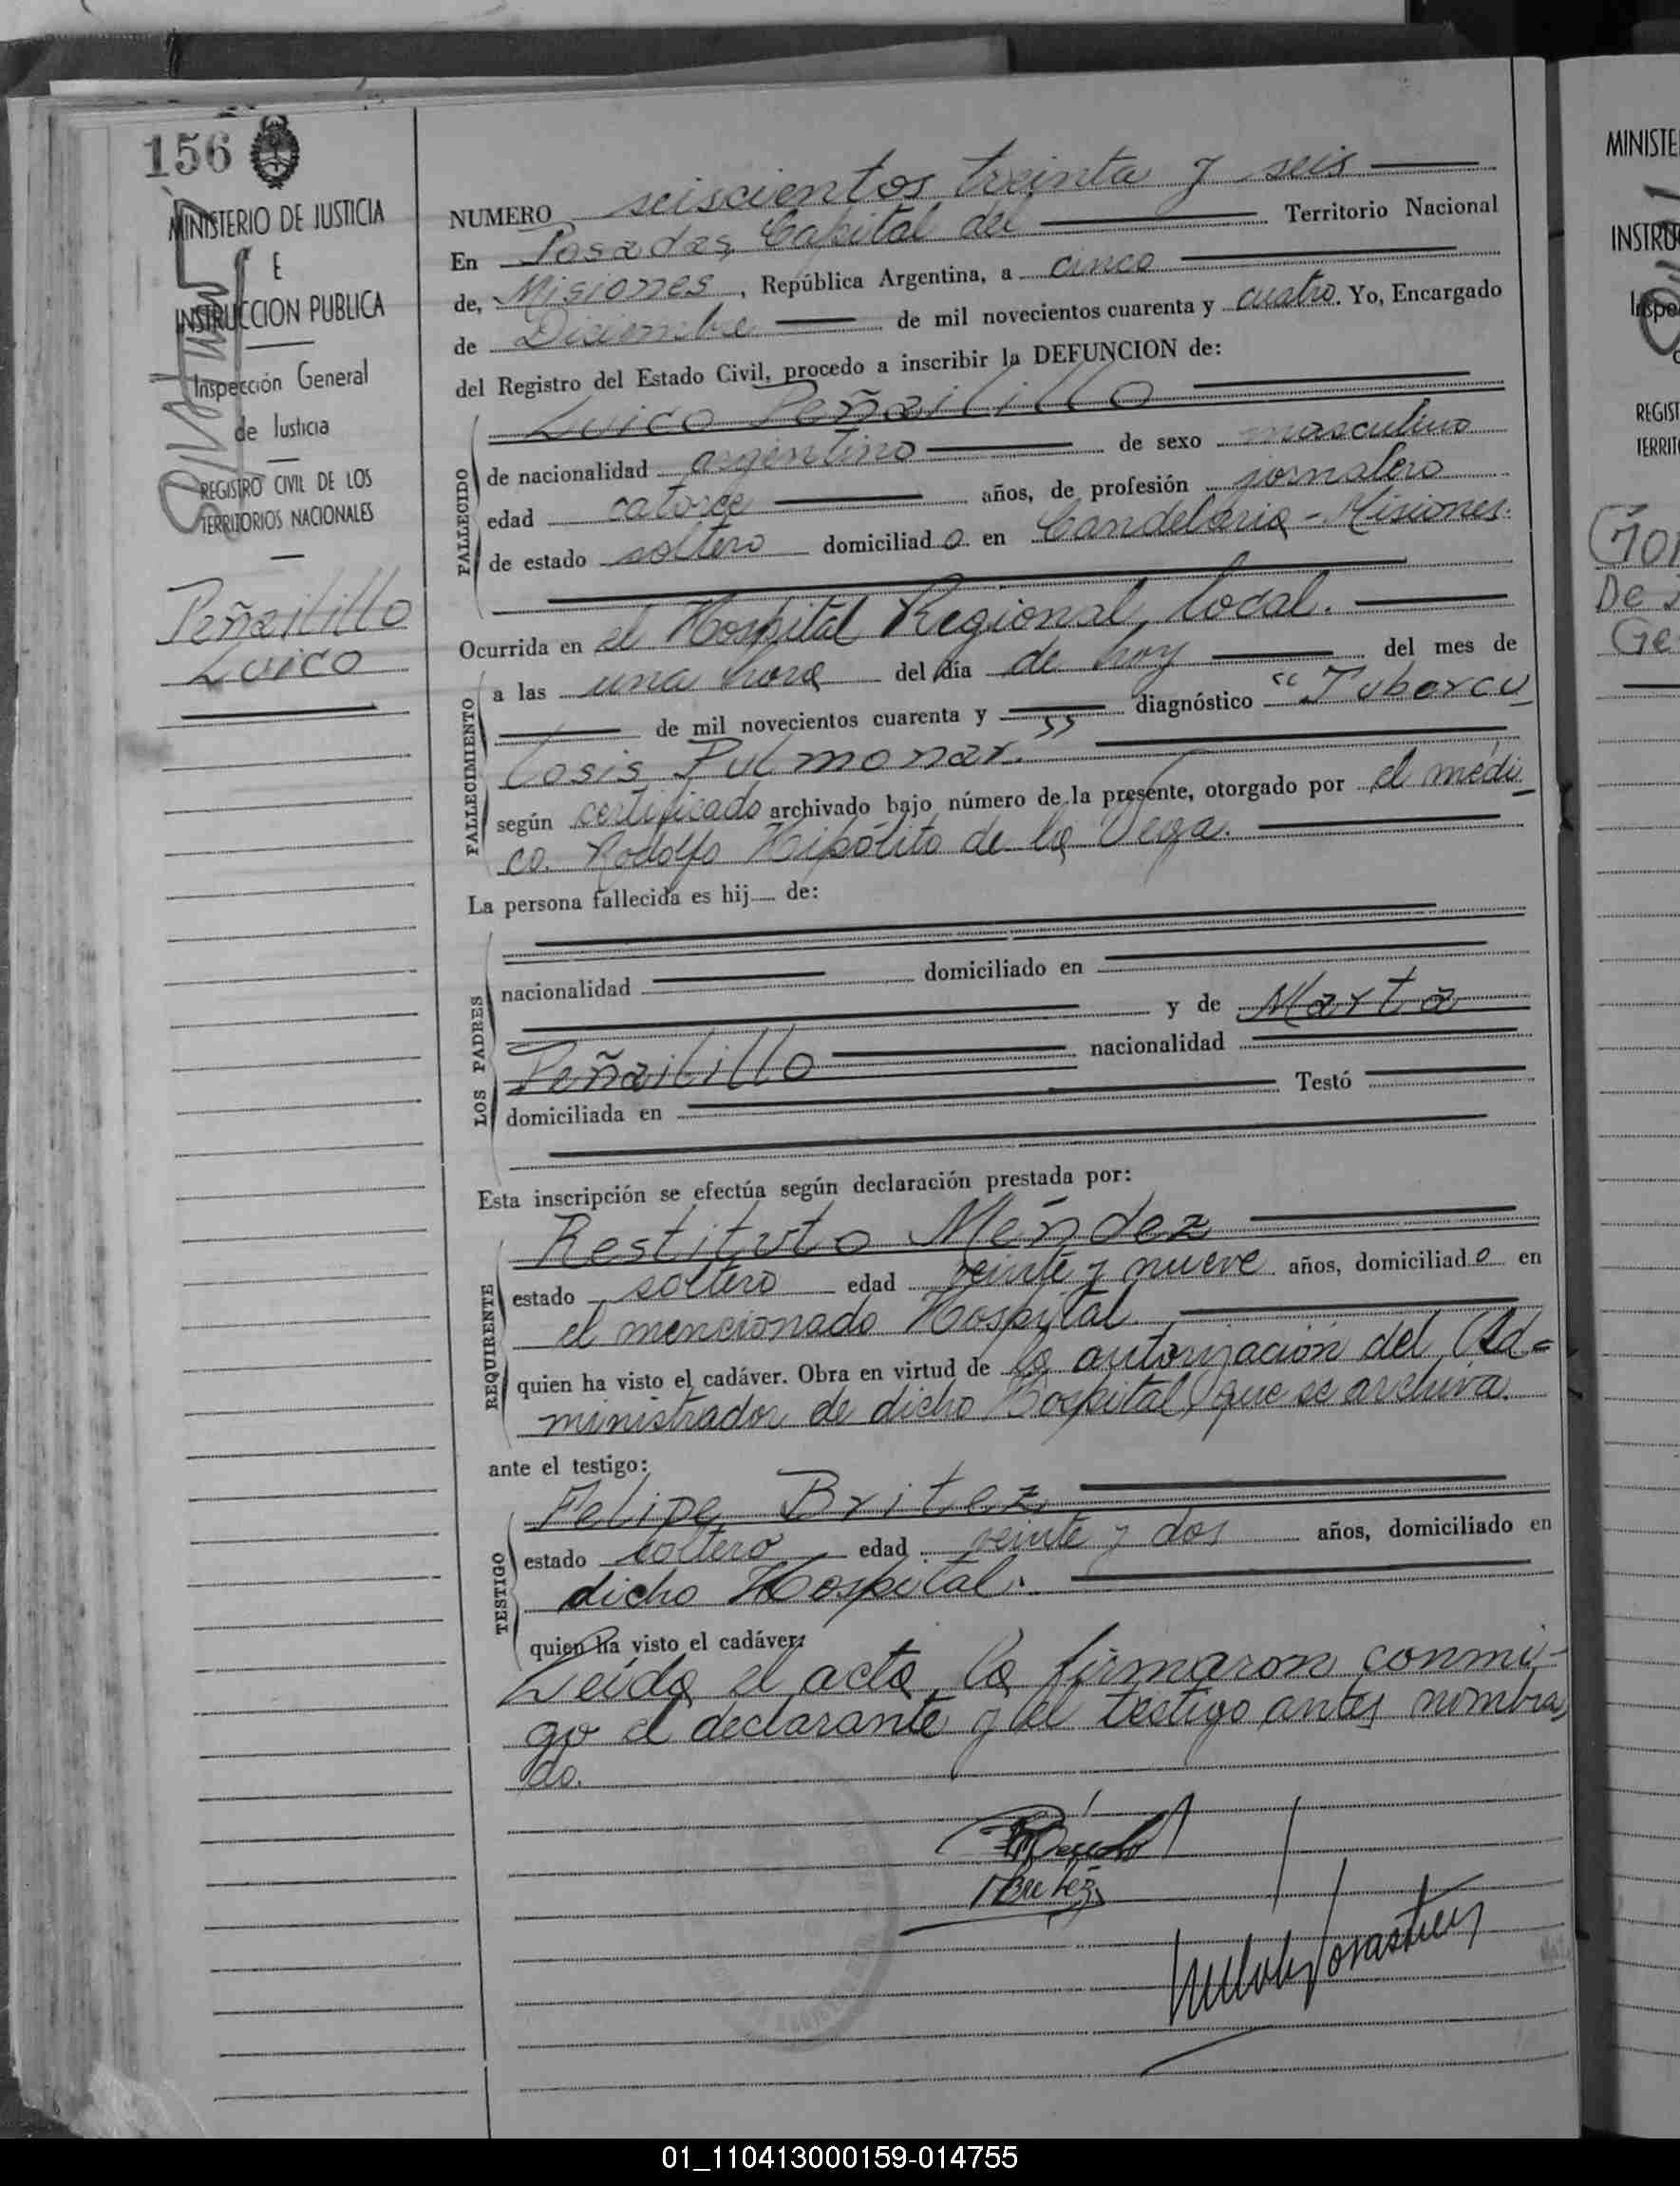 156
MINISTERIO DE JUSTICIA
E
INSTRUCCION PUBLICA
Inspección General
de Justicia
REGISTRO CIVIL DE LOS
TERRITORIOS NACIONALES
Peñailillo
Luico
NUMERO seiscientos treinta y seis
En Posadas, Capital del Territorio Nacional
de, Misiones, República Argentina, a cinco
de Diciembre de mil novecientos cuarenta y cuatro. Yo, Encargado
del Registro del Estado Civil, procedo a inscribir la DEFUNCION de:
Luico Peñailillo
FALLECIDO
de nacionalidad argentino de sexo masculino
edad catorce años, de profesión jornalero
de estado soltero domiciliado en Candelaria - Misiones.
Ocurrida en el Hospital Regional, local.
FALLECIMIENTO
a las una hora del día de hoy del mes de
de mil novecientos cuarenta y diagnóstico "Tubercu
losis Pulmonar."
según certificado archivado bajo número de la presente, otorgado por el médi
co. Rodolfo Hipólito de la Vega.
La persona fallecida es hij.... de:
LOS PADRES
nacionalidad domiciliado en
y de Marta
Peñailillo nacionalidad
domiciliada en Testó
Esta inscripción se efectúa según declaración prestada por:
REQUIRENTE
Restituto Méndez
estado soltero edad veinte y nueve años, domiciliado en
el mencionado Hospital.
quien ha visto el cadáver. Obra en virtud de la autorización del Ad=
ministrador de dicho Hospital, que se archiva.
ante el testigo:
TESTIGO
Felipe Britez
estado soltero edad veinte y dos años, domiciliado en
dicho Hospital.
quien ha visto el cadáver:
Leída el acta, la firmaron conmi-
go el declarante y el testigo antes nombra
do.
Britez
MINISTE
INSTRU
Inspe
REGIST
TERRIT
De
Ge
01_110413000159-014755